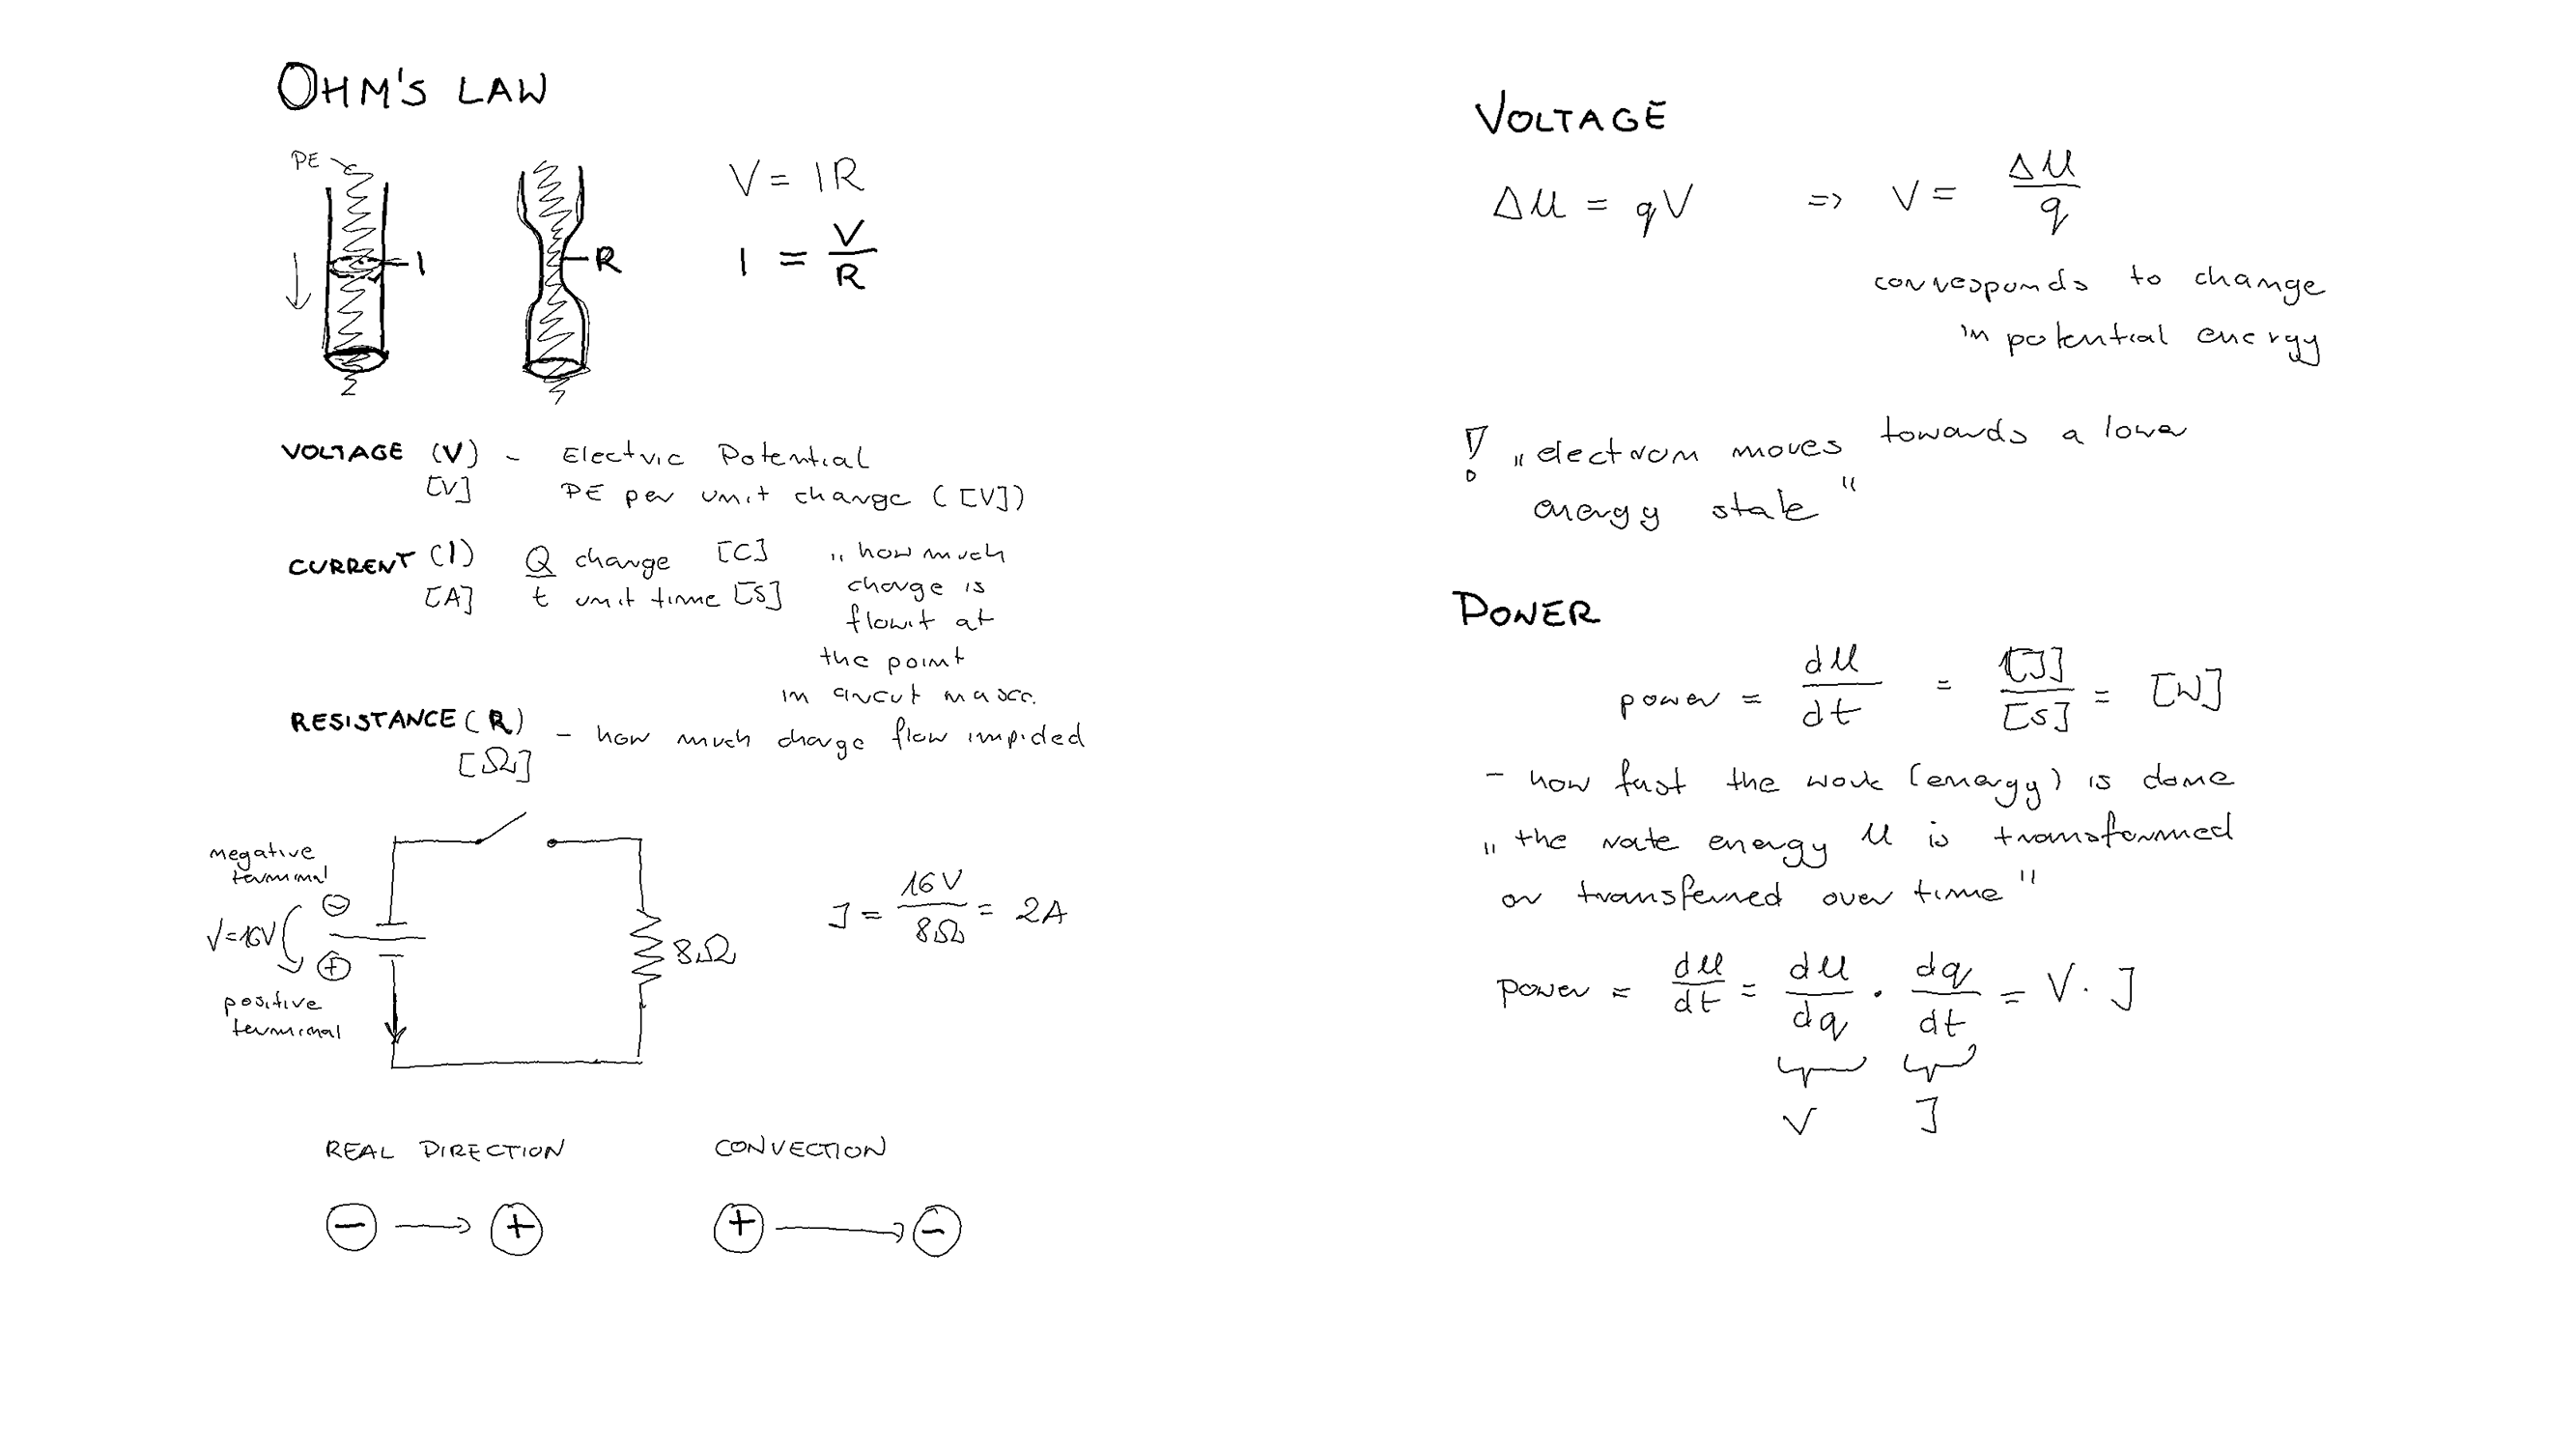 OHM'S LAW
PE
I
R
V = IR
I = V/R
VOLTAGE (V) - Electric Potential
[V] PE per unit change ([V])
CURRENT (I) Q change [C] „how much
[A] t unit time [S] charge is
flowit at
the point
in
RESISTANCE (R) - how much charge flow impided
[Ω]
negative
terminal
V=16V
⊖
⊕
positive
terminal
8Ω
J = 16V/8Ω = 2A
REAL DIRECTION
⊖ → ⊕
CONVECTION
⊕ → ⊖
VOLTAGE
ΔU = qV => V = ΔU/q
corresponds to change
in potential energy
! „electron moves towards a lower
energy state“
POWER
power = dU/dt = [J]/[S] = [W]
- how fast the work (energy) is done
„the rate energy U is transformed
or transferred over time“
power = dU/dt = dU/dq · dq/dt = V · J
V J